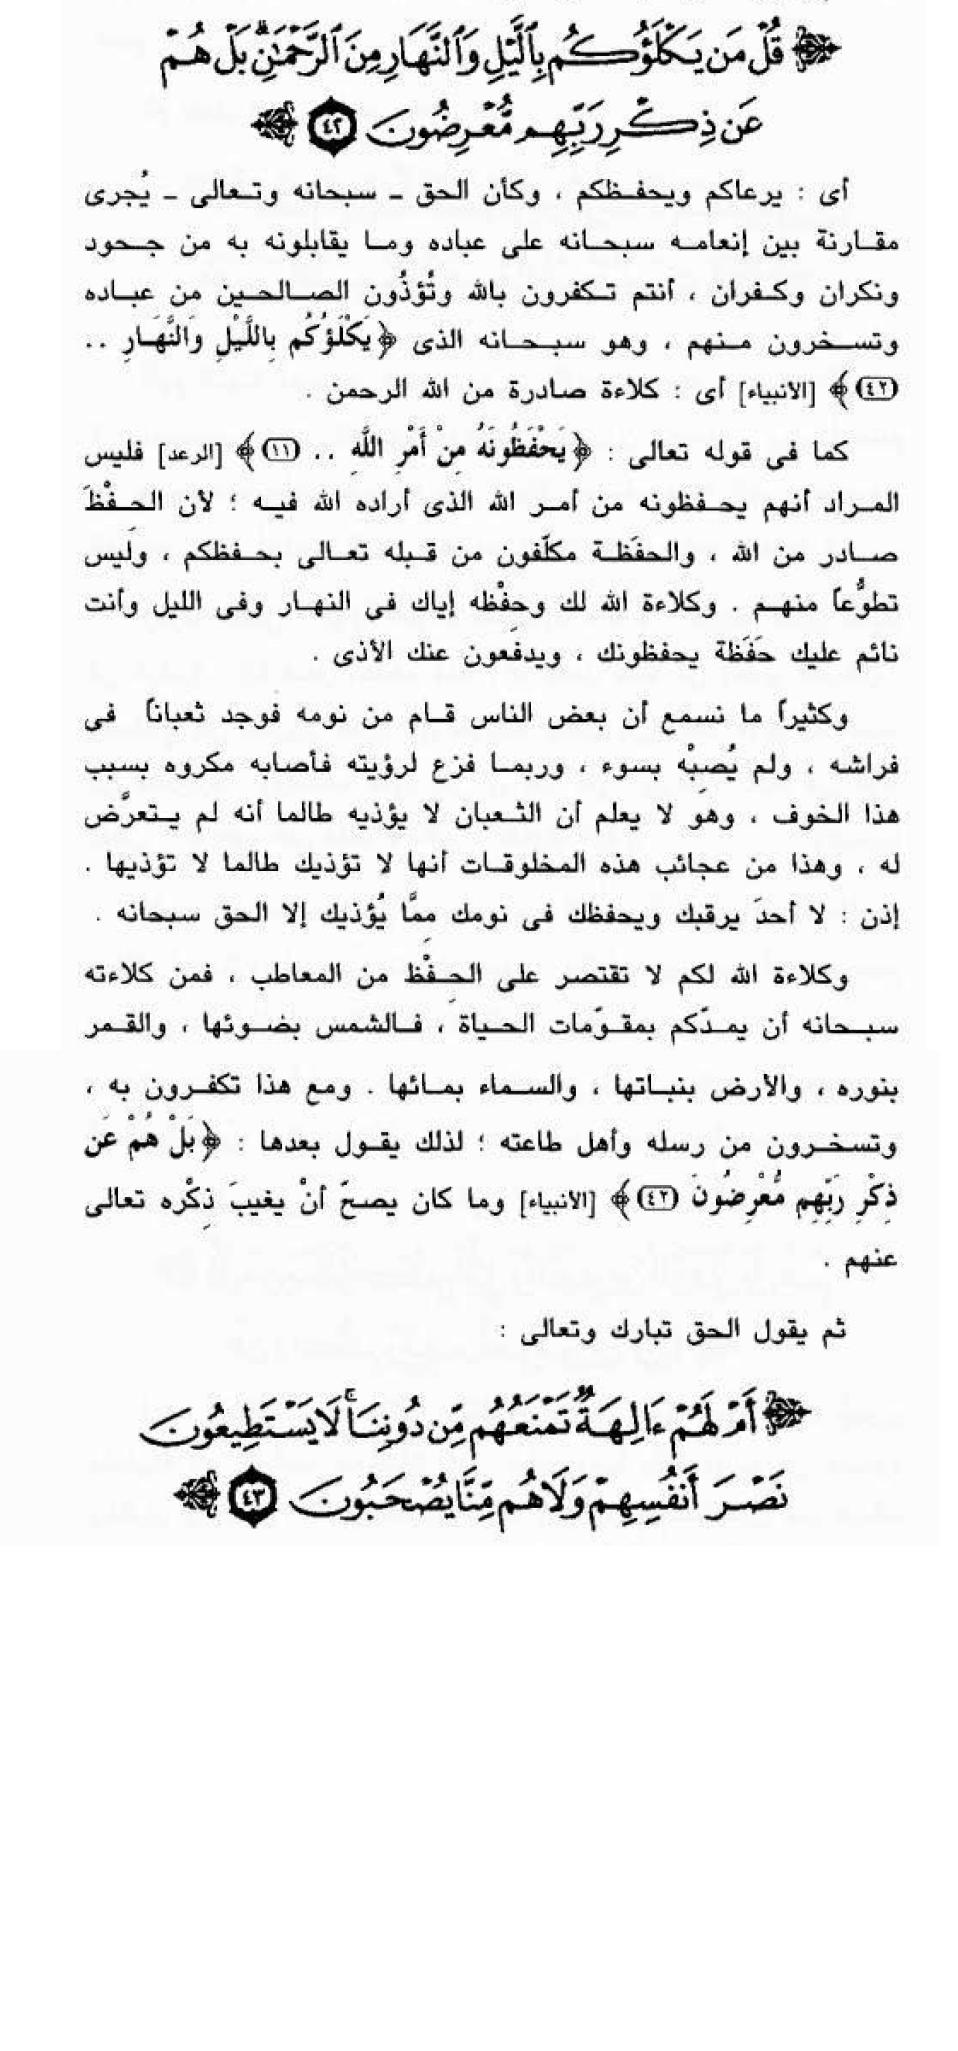 قُلْ مَن يَكْلَؤُكُم بِٱلَّيْلِ وَٱلنَّهَارِ مِنَ ٱلرَّحْمَٰنِۗ بَلْ هُمْ
عَن ذِكْرِ رَبِّهِم مُّعْرِضُونَ ٤٢
أى : يرعاكم ويحفظكم ، وكأن الحق ـ سبحانه وتعالى ـ يُجرى
مقارنة بين إنعامه سبحانه على عباده وما يقابلونه به من جحود
ونكران وكفران ، أنتم تكفرون بالله وتُؤذُون الصالحين من عباده
وتسخرون منهم ، وهو سبحانه الذى ﴿يَكْلَؤُكُم بِاللَّيْلِ وَالنَّهَارِ ..
(٤٢)﴾ [الانبياء] أى : كلاءة صادرة من الله الرحمن .
كما فى قوله تعالى : ﴿يَحْفَظُونَهُ مِنْ أَمْرِ اللَّهِ .. (١١)﴾ [الرعد] فليس
المراد أنهم يحفظونه من أمر الله الذى أراده الله فيه ؛ لأن الحِفْظَ
صادر من الله ، والحفَظة مكلّفون من قبله تعالى بحفظكم ، وليس
تطوُّعاً منهم . وكلاءة الله لك وحِفْظه إياك فى النهار وفى الليل وأنت
نائم عليك حَفَظة يحفظونك ، ويدفَعون عنك الأذى .
وكثيراً ما نسمع أن بعض الناس قام من نومه فوجد ثعباناً فى
فراشه ، ولم يُصِبْه بسوء ، وربما فزع لرؤيته فأصابه مكروه بسبب
هذا الخوف ، وهو لا يعلم أن الثعبان لا يؤذيه طالما أنه لم يتعرَّض
له ، وهذا من عجائب هذه المخلوقات أنها لا تؤذيك طالما لا تؤذيها .
إذن : لا أحدَ يرقبك ويحفظك فى نومك مِمَّا يُؤذيك إلا الحق سبحانه .
وكلاءة الله لكم لا تقتصر على الحِفْظ من المعاطب ، فمن كلاءته
سبحانه أن يمدّكم بمقوّمات الحياة ، فالشمس بضوئها ، والقمر
بنوره ، والأرض بنباتها ، والسماء بمائها . ومع هذا تكفرون به ،
وتسخرون من رسله وأهل طاعته ؛ لذلك يقول بعدها : ﴿بَلْ هُمْ عَن
ذِكْرِ رَبِّهِم مُّعْرِضُونَ (٤٢)﴾ [الأنبياء] وما كان يصحّ أنْ يغيبَ ذِكْره تعالى
عنهم .
ثم يقول الحق تبارك وتعالى :
أَمْ لَهُمْ ءَالِهَةٌ تَمْنَعُهُم مِّن دُونِنَاۚ لَا يَسْتَطِيعُونَ
نَصْرَ أَنفُسِهِمْ وَلَا هُم مِّنَّا يُصْحَبُونَ ٤٣